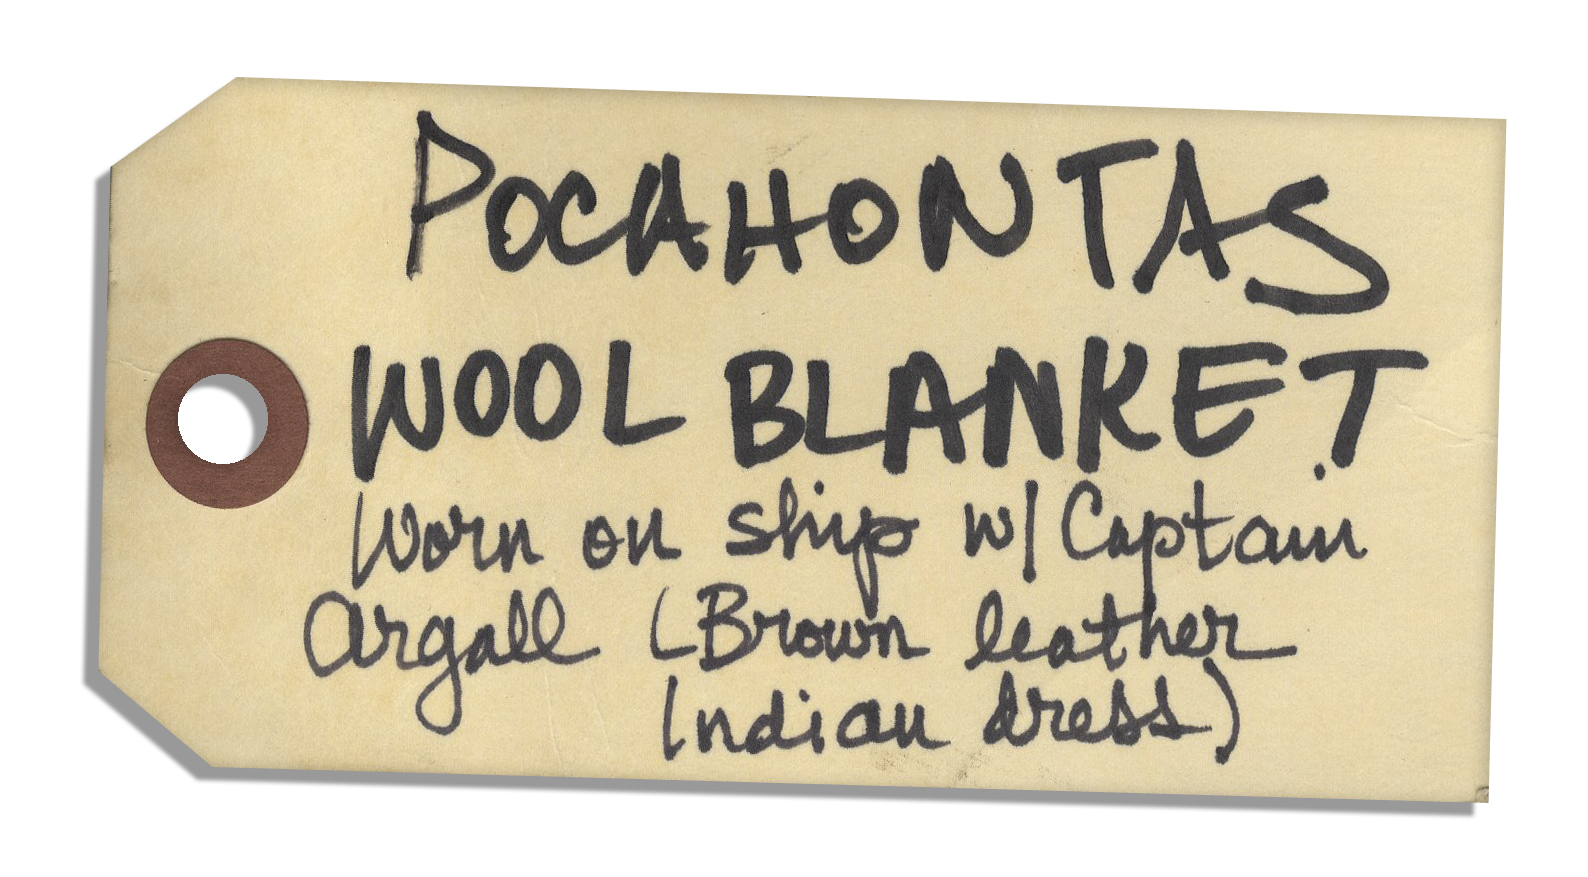 POCAHONTAS
WOOL BLANKET
Worn on ship w/ Captain
Argall (Brown leather
Indian dress)